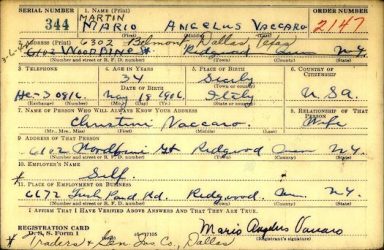 SERIAL NUMBER 1. NAME (Print)
344 MARTIN 2147
MARIO ANGELUS VACCARO
2. ADDRESS (Print) 6302 Belmont Dallas, Texas
6102 WOODBINE St Ridgewood N.Y.
(Number and street or R. F. D. number) (Town) (County) (State)
3. TELEPHONE 4. AGE IN YEARS 5. PLACE OF BIRTH 6. COUNTRY OF CITIZENSHIP
34 Sicily
DATE OF BIRTH (Town or county)
He-3 0816 May 18 1906 Italy U.S.A.
(Exchange) (Number) (Mo.) (Day) (Yr.) (State or country)
7. NAME OF PERSON WHO WILL ALWAYS KNOW YOUR ADDRESS 8. RELATIONSHIP OF THAT PERSON
Christine Vaccaro Wife
(Mr., Mrs., Miss) (First) (Middle) (Last)
9. ADDRESS OF THAT PERSON
6102 Woodbine St Ridgewood N.Y.
(Number and street or R. F. D. number) (Town) (County) (State)
10. EMPLOYER'S NAME
Self
11. PLACE OF EMPLOYMENT OR BUSINESS
6672 Fresh Pond Rd. Ridgewood. N.Y.
(Number and street or R. F. D. number) (Town) (County) (State)
I AFFIRM THAT I HAVE VERIFIED ABOVE ANSWERS AND THAT THEY ARE TRUE.
REGISTRATION CARD
D. S. S. Form 1 Mario Angelus Vaccaro
(Registrant's signature)
Traders & Gen Ins Co., Dallas